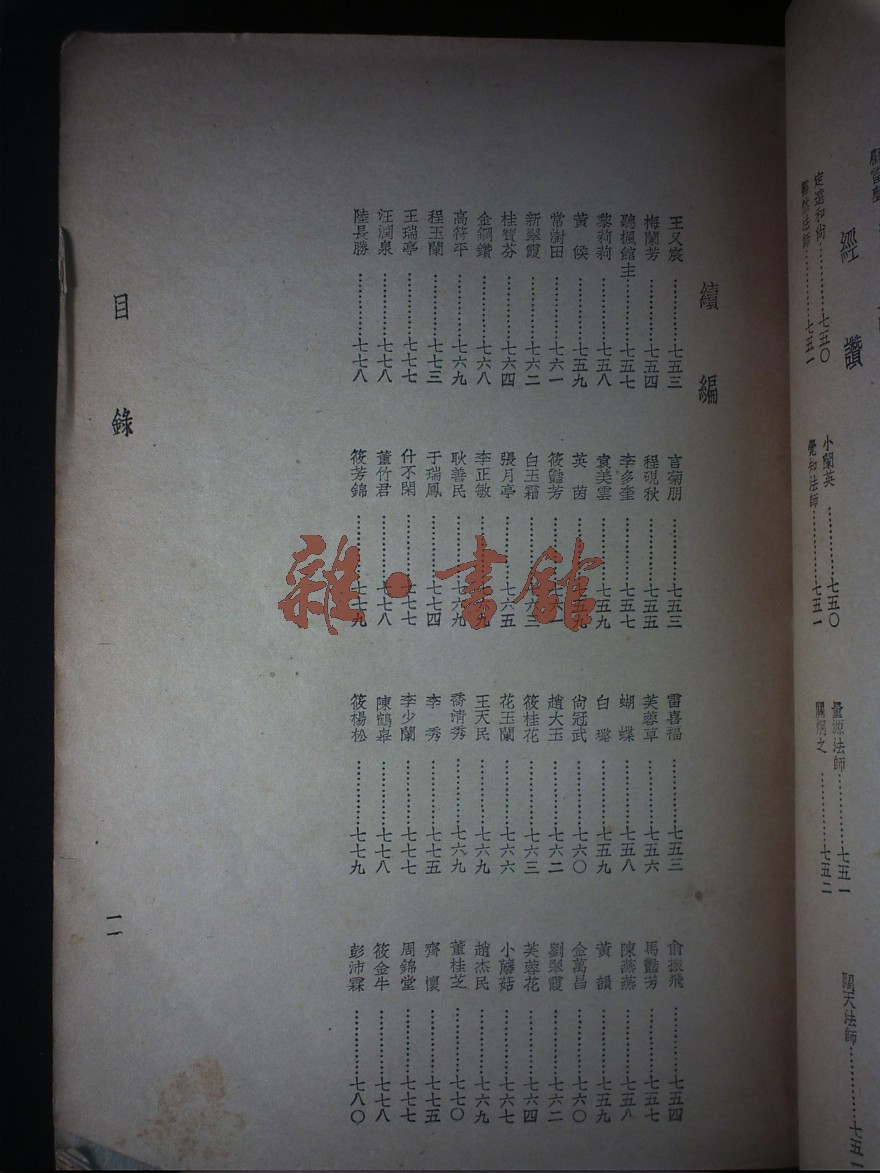 經讚
定遠和尚…………七五〇 小蘭英…………七五〇 量源法師…………七五一 闊天法師…………七五一
法師…………七五一 覺和法師…………七五一 關烱之…………七五二
續編
王又宸…………七五三 言菊朋…………七五三 雷喜福…………七五三 俞振飛…………七五四
梅蘭芳…………七五四 程硯秋…………七五五 芙蓉草…………七五六 馬豔芳…………七五七
聽楓館主…………七五七 李多奎…………七五七 蝴蝶…………七五八 陳燕燕…………七五八
黎莉莉…………七五八 袁美雲…………七五九 白璐…………七五九 黃韻…………七五九
黃候…………七五九 英茵…………七五九 尙冠武…………七六〇 金萬昌…………七六〇
常澍田…………七六一 筱豔芳…………七六一 趙大玉…………七六二 劉翠霞…………七六二
新翠霞…………七六二 白玉霜…………七六三 筱桂花…………七六三 芙蓉花…………七六四
桂寶芬…………七六四 張月亭…………七六五 花玉蘭…………七六六 小蘑菇…………七六七
金鋼鑽…………七六八 李正敏…………七六九 王天民…………七六九 趙杰民…………七六九
高符平…………七六九 耿善民…………七六九 喬清秀…………七六九 董桂芝…………七七〇
程玉蘭…………七七三 于瑞鳳…………七七四 李秀…………七七五 齊懷…………七七五
王瑞亭…………七七七 什不閑…………七七七 李少蘭…………七七七 周錦堂…………七七七
汪潤泉…………七七八 董竹君…………七七八 陳鶴皋…………七七八 筱金牛…………七七八
陸長勝…………七七八 筱芳錦…………七七九 筱楊松…………七七九 彭沛霖…………七八〇
目錄
一一
雜·書館